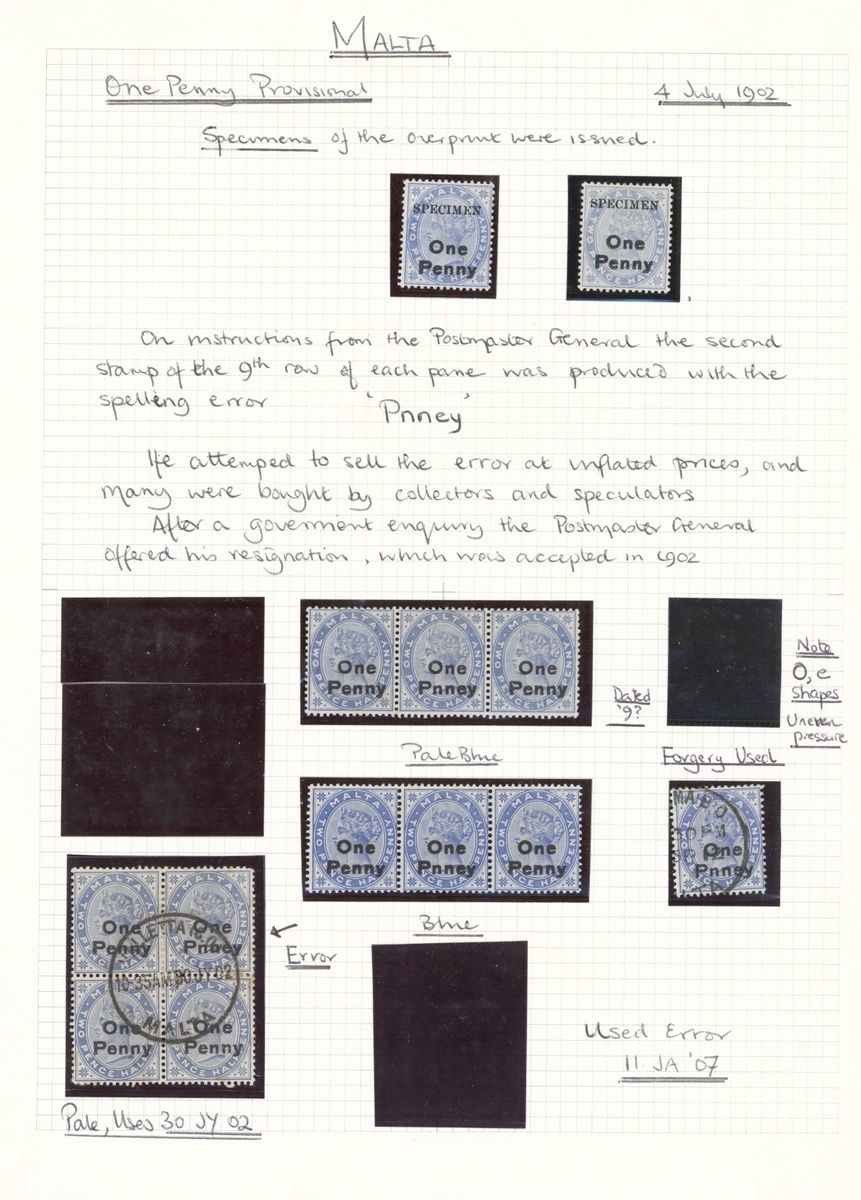 MALTA
One Penny Provisional
4 July 1902
Specimens of the overprint were issued.
MALTA
SPECIMEN
One
Penny
TWO PENCE HALFPENNY
MALTA
SPECIMEN
One
Penny
TWO PENCE HALFPENNY
On instructions from the Postmaster General the second
stamp of the 9th row of each pane was produced with the
spelling error 'Pnney'
He attemped to sell the error at inflated prices, and
many were bought by collectors and speculators
After a goverment enquiry the Postmaster General
offered his resignation, which was accepted in 1902
MALTA
One
Penny
TWO PENCE HALFPENNY
MALTA
One
Pnney
TWO PENCE HALFPENNY
MALTA
One
Penny
TWO PENCE HALFPENNY
Dated
'9?
Note
O, e
shapes
Uneven
pressure
Pale Blue
Forgery Used
MALTA
One
Penny
TWO PENCE HALFPENNY
MALTA
One
Pnney
TWO PENCE HALFPENNY
MALTA
One
Penny
TWO PENCE HALFPENNY
One
Pnney
Blue
MALTA
One
Penny
MALTA
One
Pnney
VALETTA
10·35AM 30 JY 02
MALTA
One
Penny
One
Penny
Error
Used Error
11 JA '07
Pale, Uses 30 JY 02